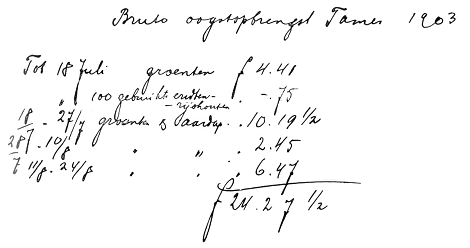 Bruto oogstopbrengst Tames 1903
Tot 18 Juli groenten f 4.41
„ „ 100 gebruikte erwten-rijshouten . -.75
18/7 - 27/7 groenten & aardap. . . 10.19 1/2
28/7 - 10/8 „ „ . 2.45
11/8 . 24/8 . . . 6.47
f 24.27 1/2